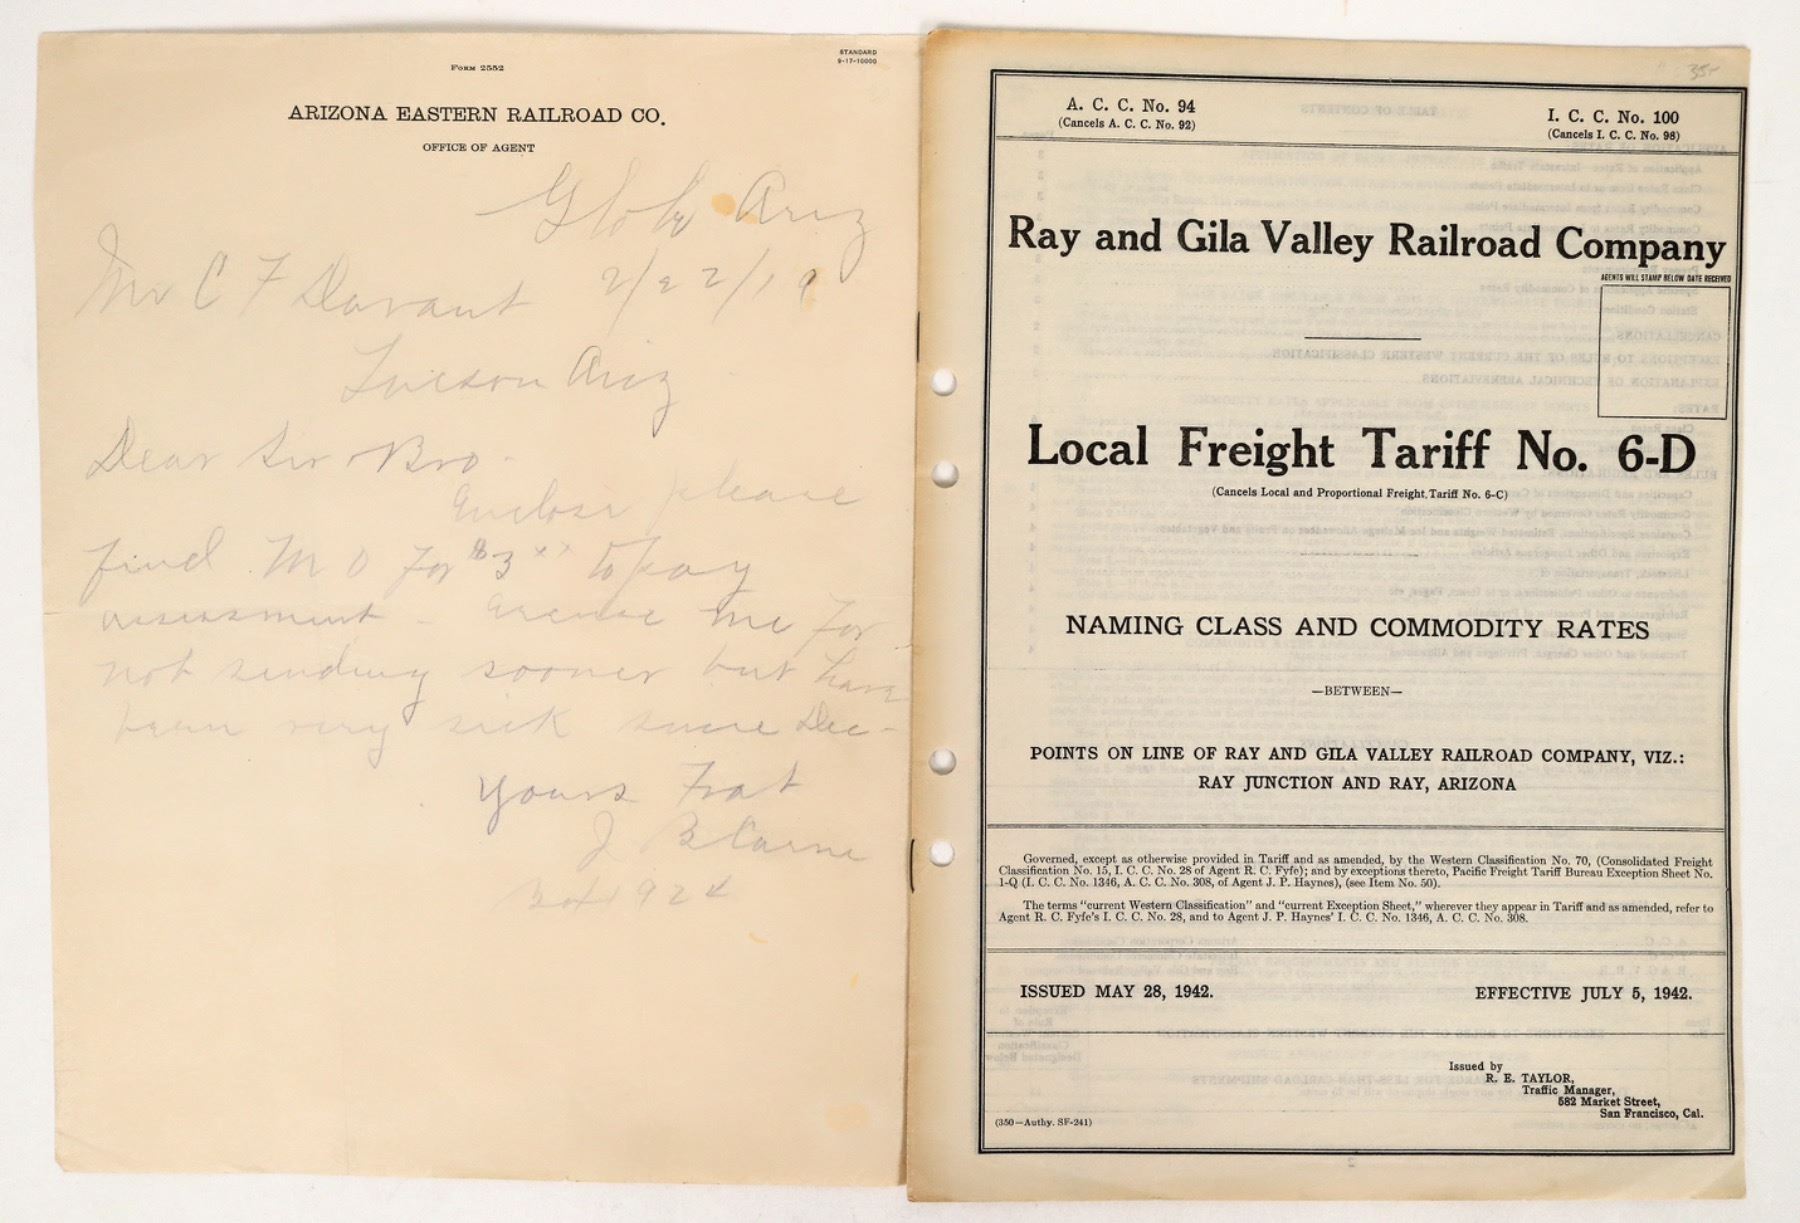 Form 2552
STANDARD
9-17-10000
ARIZONA EASTERN RAILROAD CO.
OFFICE OF AGENT
Globe Ariz
2/22/19
Mr C F Davant
Tucson Ariz
Dear Sir & Bro.
Enclose please
find M O For $3xx to pay
assessment. Excuse me for
not sending sooner but have
been very sick since Dec-
Yours Frat
J B
1924
35-
A. C. C. No. 94
(Cancels A. C. C. No. 92)
I. C. C. No. 100
(Cancels I. C. C. No. 98)
Ray and Gila Valley Railroad Company
AGENTS WILL STAMP BELOW DATE RECEIVED
Local Freight Tariff No. 6-D
(Cancels Local and Proportional Freight Tariff No. 6-C)
NAMING CLASS AND COMMODITY RATES
—BETWEEN—
POINTS ON LINE OF RAY AND GILA VALLEY RAILROAD COMPANY, VIZ.:
RAY JUNCTION AND RAY, ARIZONA
Governed, except as otherwise provided in Tariff and as amended, by the Western Classification No. 70, (Consolidated Freight
Classification No. 15, I. C. C. No. 28 of Agent R. C. Fyfe); and by exceptions thereto, Pacific Freight Tariff Bureau Exception Sheet No.
1-Q (I. C. C. No. 1346, A. C. C. No. 308, of Agent J. P. Haynes), (see Item No. 50).
The terms "current Western Classification" and "current Exception Sheet," wherever they appear in Tariff and as amended, refer to
Agent R. C. Fyfe's I. C. C. No. 28, and to Agent J. P. Haynes' I. C. C. No. 1346, A. C. C. No. 308.
ISSUED MAY 28, 1942.
EFFECTIVE JULY 5, 1942.
Issued by
R. E. TAYLOR,
Traffic Manager,
582 Market Street,
San Francisco, Cal.
(350—Authy. SF-241)